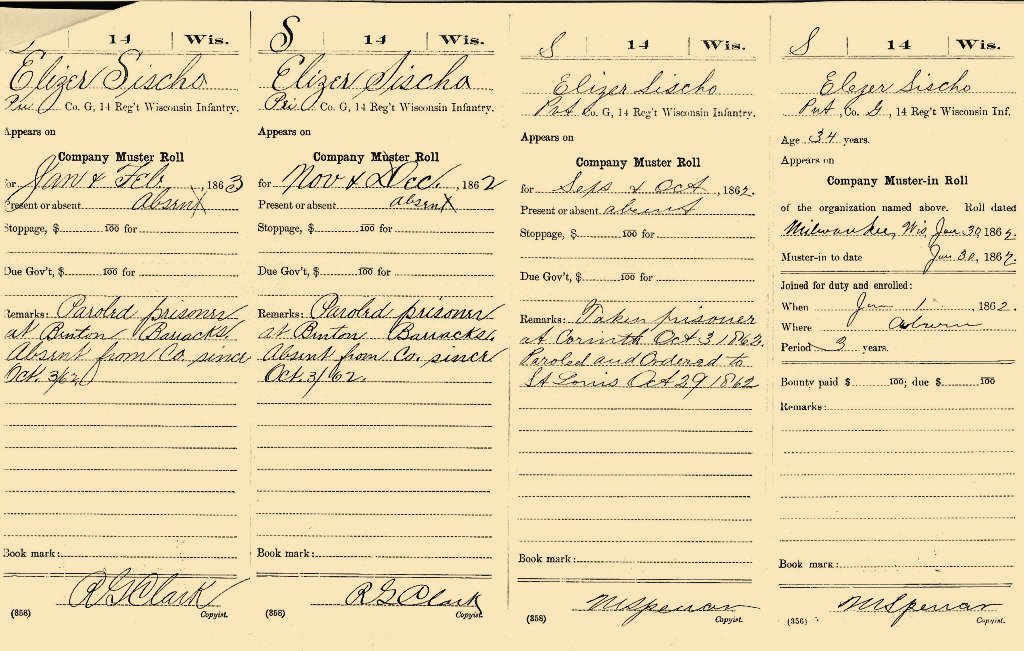 14 | Wis.
Elizer Sischo
Pri, Co. G, 14 Reg't Wisconsin Infantry.
Appears on
Company Muster Roll
for Jan & Feb., 1863
Present or absent absent
Stoppage, $ 100 for
Due Gov't, $ 100 for
Remarks: Paroled prisoner
at Benton Barracks.
Absent from Co. since
Oct. 3/62
Book mark:
R G Clark
(358) Copyist.
S | 14 | Wis.
Elizer Sischo
Pri, Co. G, 14 Reg't Wisconsin Infantry.
Appears on
Company Muster Roll
for Nov & Dec., 1862
Present or absent absent
Stoppage, $ 100 for
Due Gov't, $ 100 for
Remarks: Paroled prisoner
at Benton Barracks.
Absent from Co. since
Oct. 3/62.
Book mark:
R G Clark
(358) Copyist.
S | 14 | Wis.
Elizer Sischo
Pvt, Co. G, 14 Reg't Wisconsin Infantry.
Appears on
Company Muster Roll
for Sept & Oct, 1862.
Present or absent absent
Stoppage, $ 100 for
Due Gov't, $ 100 for
Remarks: Taken prisoner
at Corinth Oct 3 1862.
Paroled and Ordered to
St Louis Oct 29 1862
Book mark:
M Sperrar
(358) Copyist.
S | 14 | Wis.
Elezer Sischo
Pvt, Co. G, 14 Reg't Wisconsin Inf.
Age 34 years.
Appears on
Company Muster-in Roll
of the organization named above. Roll dated
Milwaukee, Wis, Jan 30, 1862.
Muster-in to date Jan 30, 1862.
Joined for duty and enrolled:
When Jan, 1862
Where
Period 3 years.
Bounty paid $ 100; due $ 100
Remarks:
Book mark:
M Sperrar
(356) Copyist.